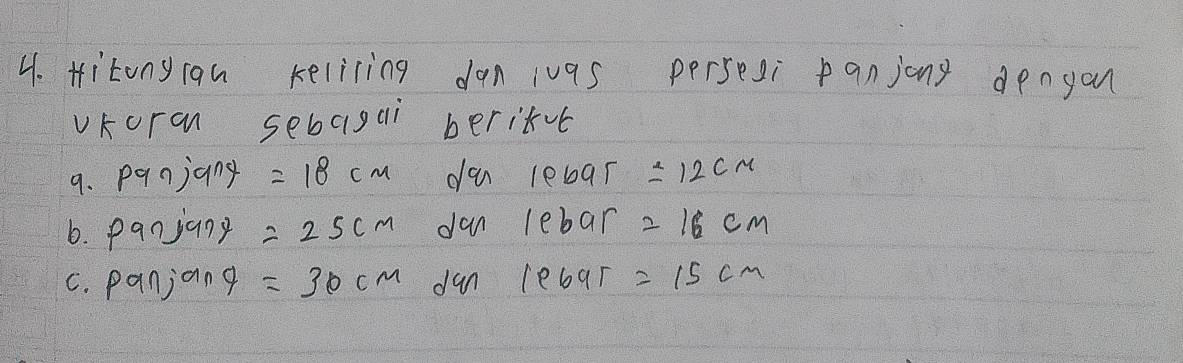 4. Hitunglah keliling dan luas persegi panjang dengan
ukuran sebagai berikut
a. panjang = 18 cm dan lebar = 12 cm
b. panjang = 25 cm dan lebar = 16 cm
c. panjang = 30 cm dan lebar = 15 cm